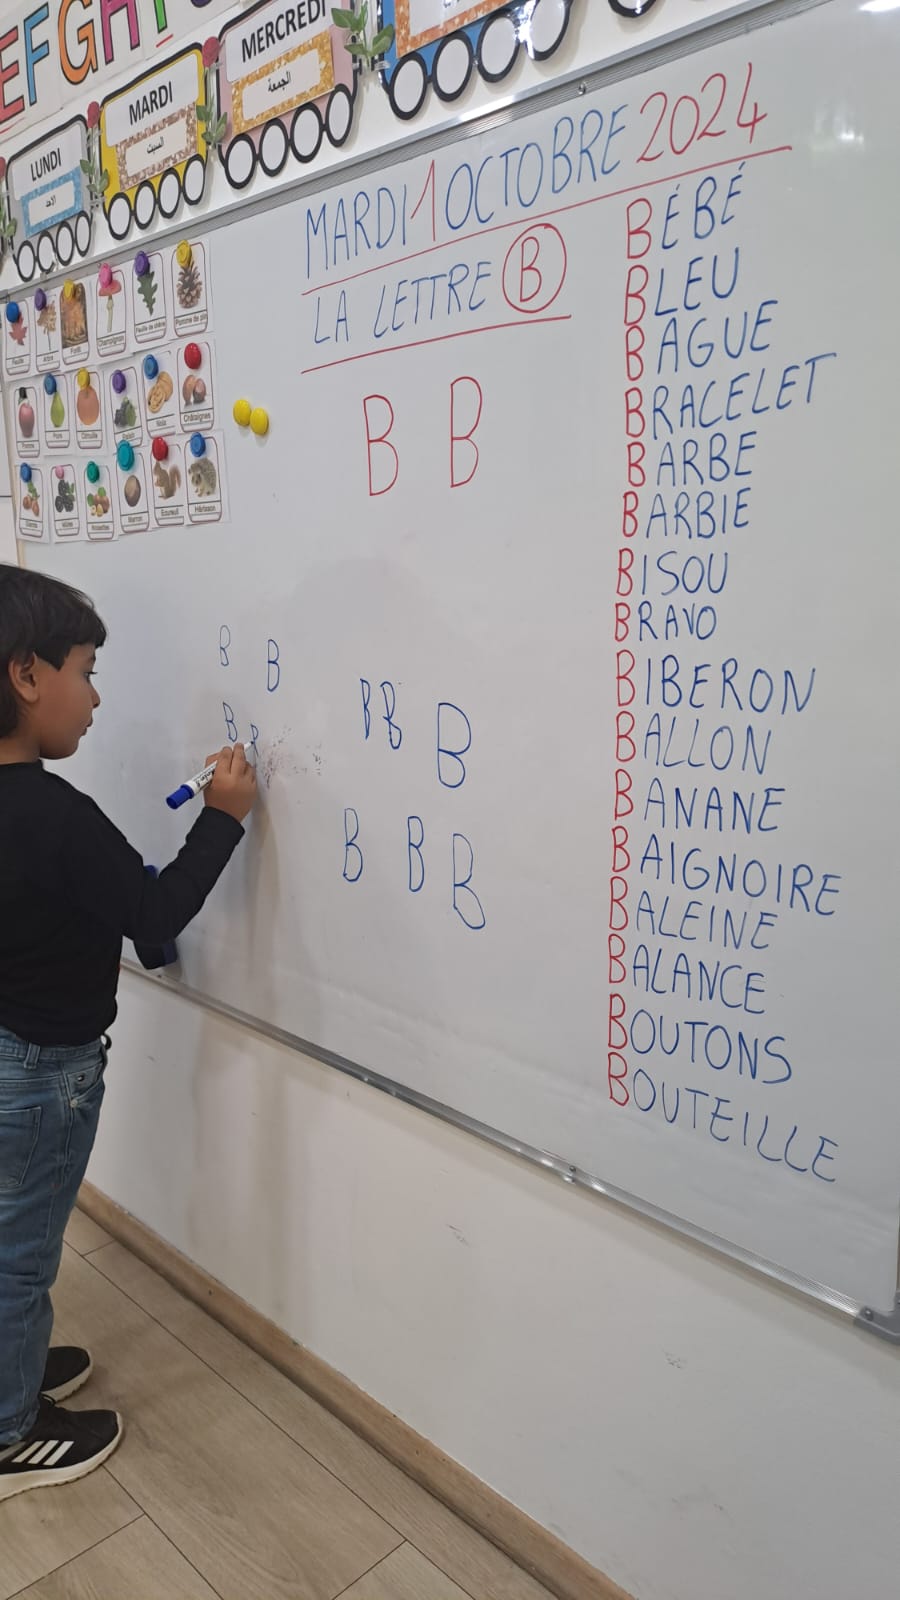 EFGH
LUNDI
الاحد
MARDI
السبت
MERCREDI
الجمعة
MARDI 1 OCTOBRE 2024
LA LETTRE B
B B
B B
B B
B B B
B B B
BÉBÉ
BLEU
BAGUE
BRACELET
BARBE
BARBIE
BISOU
BRAVO
BIBERON
BALLON
BANANE
BAIGNOIRE
BALEINE
BALANCE
BOUTONS
BOUTEILLE
Feuille
Arbre
Forêt
Champignon
Feuille de chêne
Pomme de pin
Pomme
Poire
Citrouille
Raisin
Noix
Châtaignes
Mûres
Noisettes
Marron
Ecureuil
Hérisson